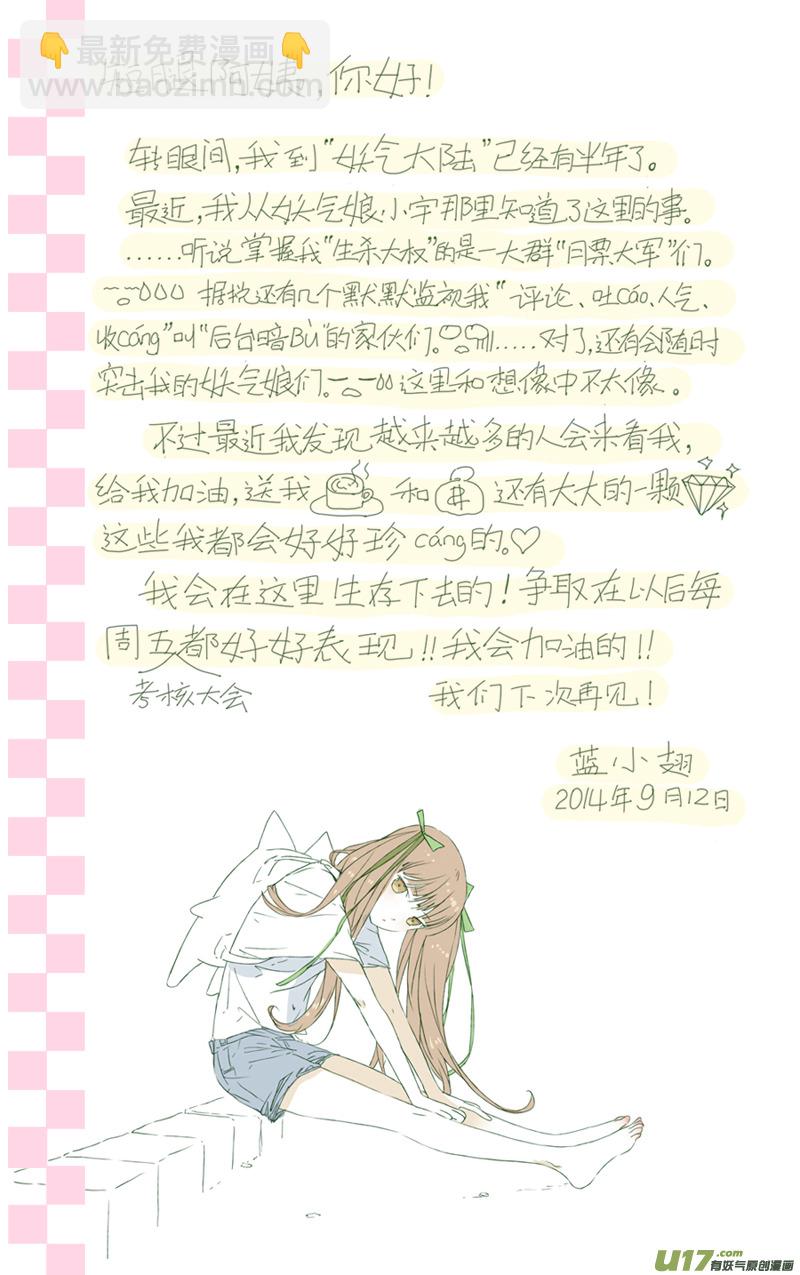 👇最新免费漫画👇
www.baozimh.com
短腿阿姨,你好!
转眼间,我到"妖气大陆"已经有半年了。
最近,我从妖气娘小宇那里知道了这里的事。
......听说掌握我"生杀大权"的是一大群"月票大军"们。
据说还有几个默默监视我"评论、吐cáo、人气、
收cáng"叫"后台暗Bù"的家伙们。.....对了,还有会随时
突击我的妖气娘们。这里和想像中不太像。
不过最近我发现越来越多的人会来看我,
给我加油,送我 和 还有大大的一颗
这些我都会好好珍cáng的。♡
我会在这里生存下去的!争取在以后每
周五都好好表现!!我会加油的!!
考核大会 我们下次再见!
蓝小翅
2014年9月12日
U17.com
有妖气原创漫画